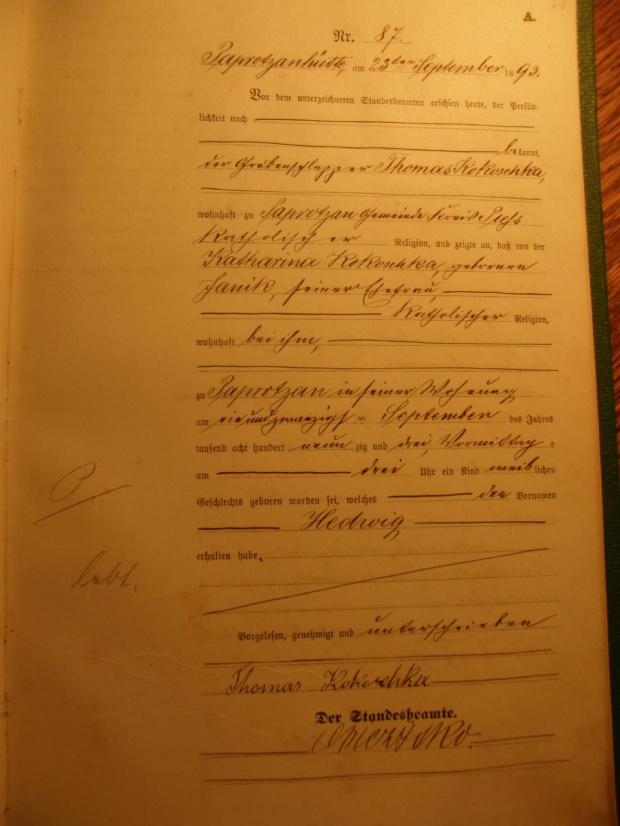 A.
Nr. 87.
Paprotzanhütte, am 23ten September 1893.
Vor dem unterzeichneten Standesbeamten erschien heute, der Persön-
lichkeit nach
bekannt,
der Grubenschlepper Thomas Kokoschka,
wohnhaft zu Paprotzan Gemeinde Kreis Pleß
katholischer Religion, und zeigte an, daß von der
Katharina Kokoschka, geborenen
Janik, seiner Ehefrau,
katholischer Religion,
wohnhaft bei ihm,
zu Paprotzan in seiner Wohnung
am einundzwanzigsten September des Jahres
tausend acht hundert neunzig und drei, Vormittags
um drei Uhr ein Kind weiblichen
Geschlechts geboren worden sei, welches den Vornamen
Hedwig
erhalten habe.
lebt.
Vorgelesen, genehmigt und unterschrieben
Thomas Kokoschka
Der Standesbeamte.